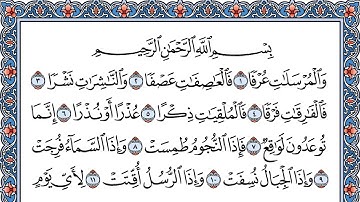 بِسْمِ ٱللَّهِ ٱلرَّحْمَٰنِ ٱلرَّحِيمِ
وَٱلْمُرْسَلَٰتِ عُرْفًا ١ فَٱلْعَٰصِفَٰتِ عَصْفًا ٢ وَٱلنَّٰشِرَٰتِ نَشْرًا ٣
فَٱلْفَٰرِقَٰتِ فَرْقًا ٤ فَٱلْمُلْقِيَٰتِ ذِكْرًا ٥ عُذْرًا أَوْ نُذْرًا ٦ إِنَّمَا
تُوعَدُونَ لَوَٰقِعٌ ٧ فَإِذَا ٱلنُّجُومُ طُمِسَتْ ٨ وَإِذَا ٱلسَّمَآءُ فُرِجَتْ
٩ وَإِذَا ٱلْجِبَالُ نُسِفَتْ ١٠ وَإِذَا ٱلرُّسُلُ أُقِّتَتْ ١١ لِأَىِّ يَوْمٍ